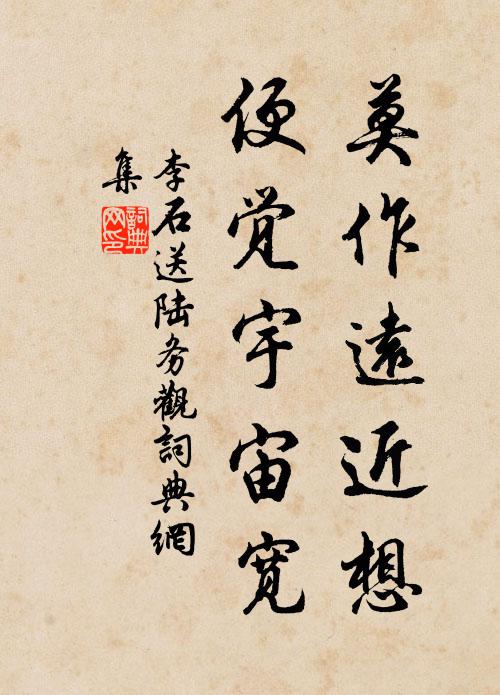 莫作遠近想
便觉宇宙寬
李石送陆务觀詞典網
集
詞典
网印